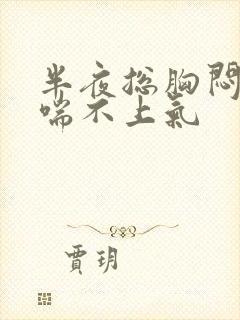 半夜总胸闷
喘不上氣
賈玥